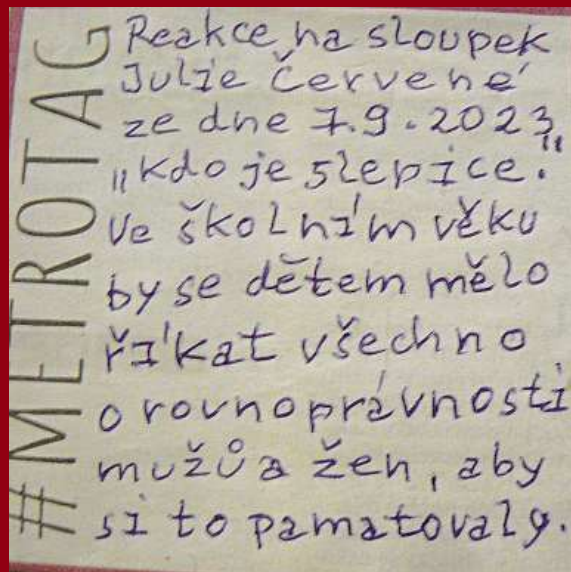 #METROTAG
Reakce na sloupek
Julie Červené
ze dne 7.9.2023,
„kdo je slepice."
Ve školním věku
by se dětem mělo
říkat všechno
o rovnoprávnosti
mužů a žen, aby
si to pamatovaly.